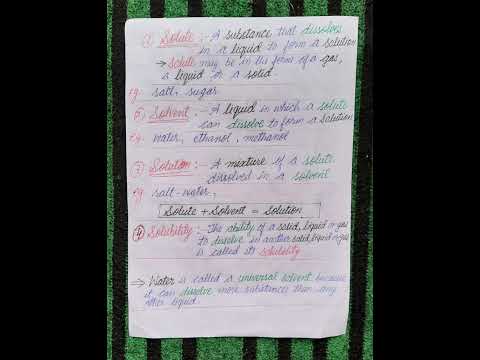 Solute :- A substance that dissolves
in a liquid to form a solution
→ Solute may be in the form of a gas,
a liquid or a solid.
eg. salt, sugar
Solvent :- A liquid in which a solute
can dissolve to form a solution
eg. water, ethanol, methanol
Solution :- A mixture of a solute
dissolved in a solvent
eg salt-water,
Solute + Solvent = Solution
Solubility :- The ability of a solid, liquid or gas
to dissolve in another solid, liquid or gas
is called its solubility
→ Water is called a universal solvent because
it can dissolve more substances than any
other liquid.